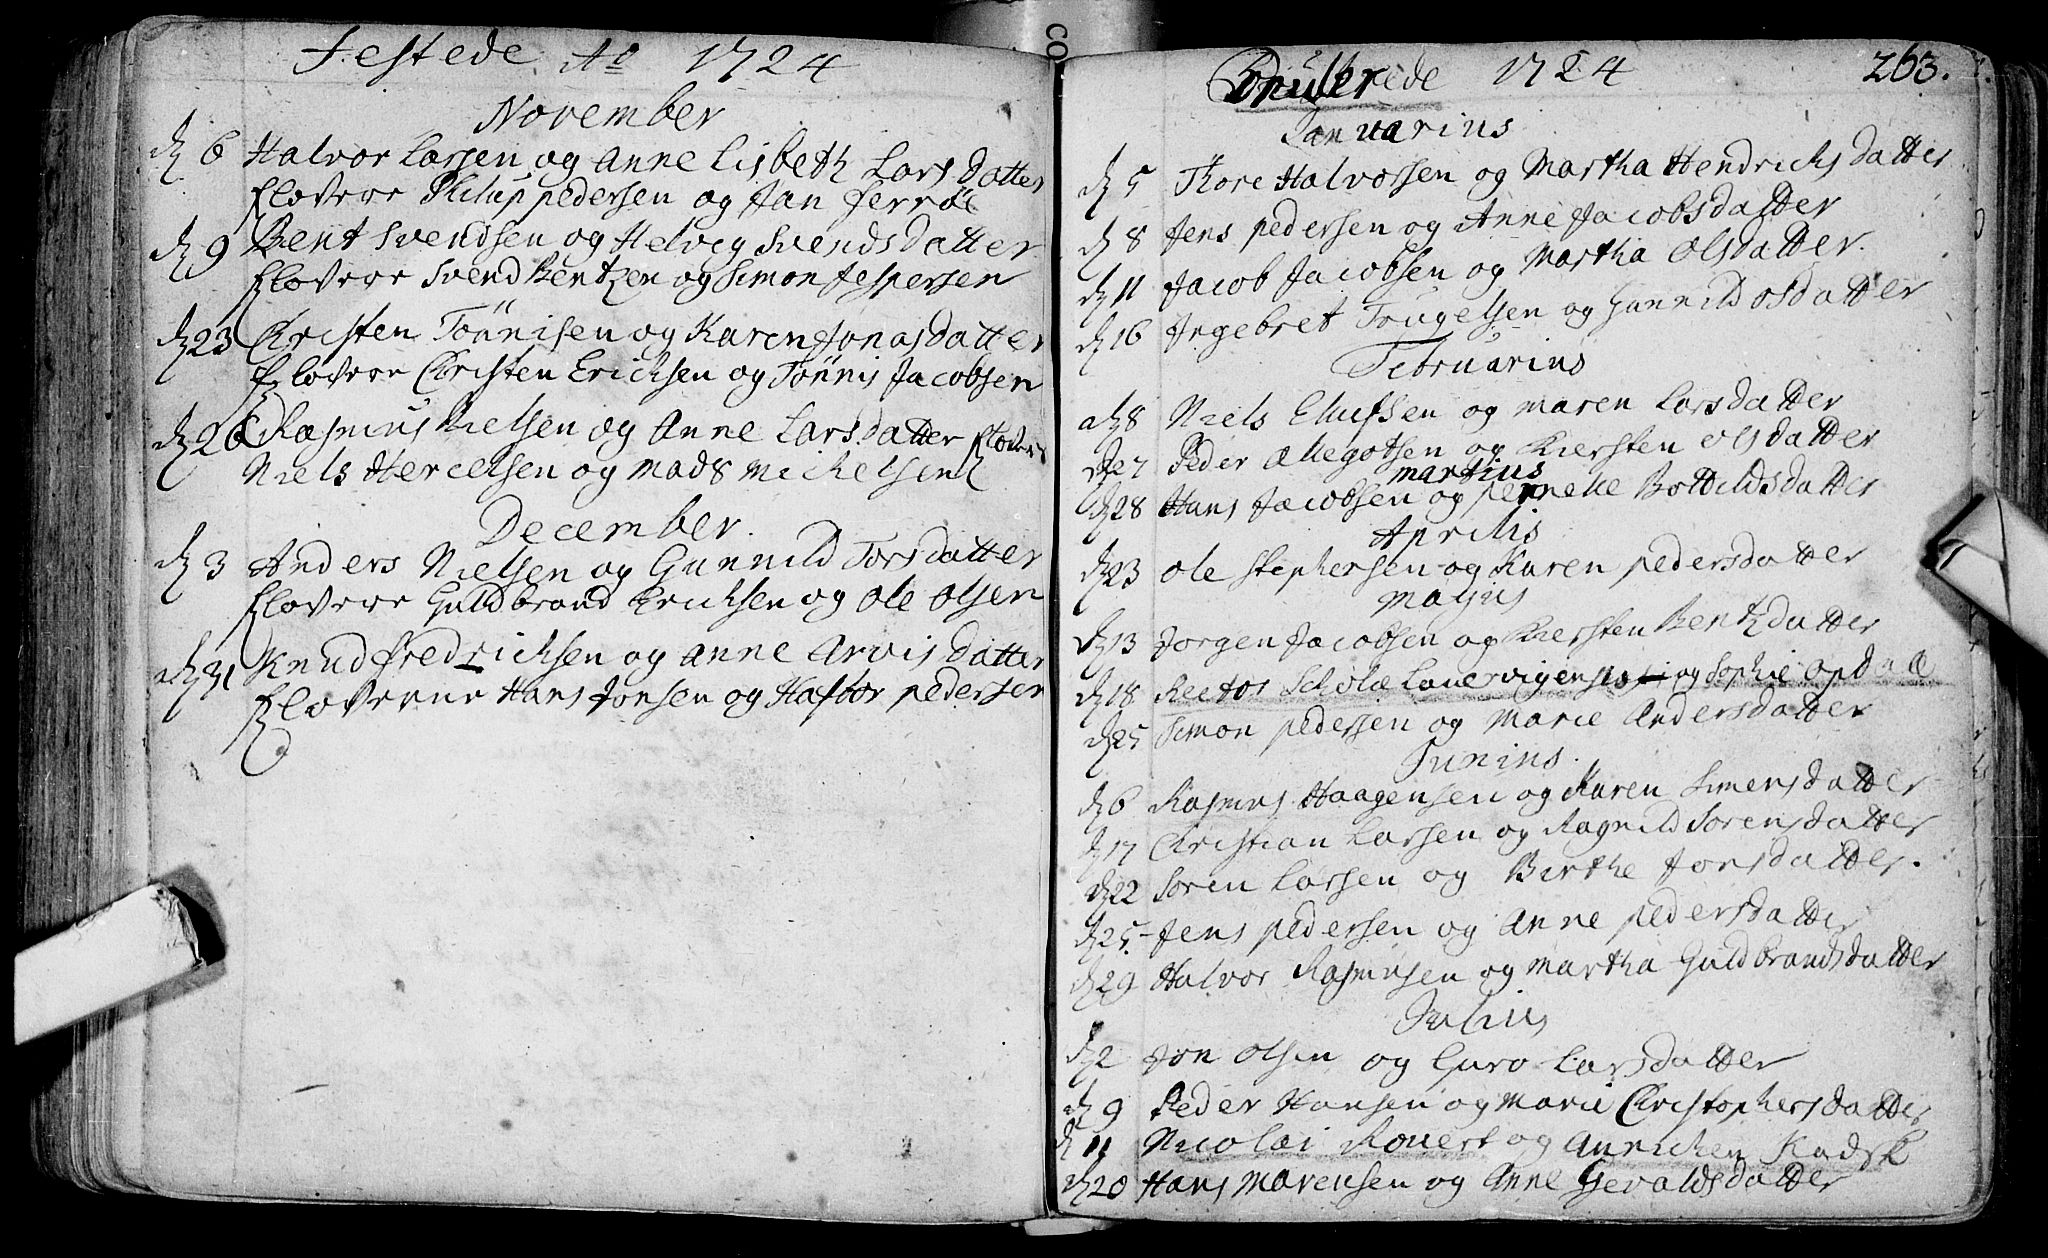 Festede Ao 1724
November
d 6 Halvor Larsen og Anne Lisbeth Lars datter
flovere Philup pedersen og Jan ferröe
d 9 Bent Svendsen og Helvig Svends datter
flovere Svend Bentzen og Simon Jespersen
d 23 Christen Tönnisen og Karen Jonas datter
flovere Christen Ericksen og Tönnis Jacobsen
d 26 Rasmus Nielsen og Anne Lars datter flovere
Niels Hericksen og Mads Mickelsen
December.
d 3 Anders Nielsen og Gunnild Tors datter
flovere Guldbrand Ericksen og Ole Olsen
d 31 Knud fredricksen og Anne Arvis datter
floverne Hans Jonsen og Haftor pedersen
Copulerede 1724 263.
Januarius
d 5 Thore Halvorsen og Martha Hendrichs datter
d 8 Jens pedersen og Anne Jacobs datter
d 11 Jacob Jacobsen og Martha Olsdatter.
d 16 Ingebret Trugelsen og Gunnild Osdatter
Februarius
d 8 Niels Elufsen og Maren Larsdatter
de 7 Peder Allegotsen og Kiersten Olsdatter
Martius
d 28 Hans Jacobsen og penneke Bottilds datter
Aprilis
d 23 Ole Stephensen og Karen pedersdatter
Majus
d 13 Jorgen Jacobsen og Kiersten Bentzdatter
d 18 Rector Scholæ Laurvigensis og Sophie Opdal
d 25 Simon pedersen og Marie Andersdatter
Junius.
d 6 Rasmus Haagensen og Karen Simensdatter
d 17 Christian Larsen og Ragnild Sorensdatter
d 22 Soren Larsen og Birthe Jonsdatter.
d 25 Jens pedersen og Anne pedersdatter
d 29 Halvor Rasmusen og Martha Guldbrandsdatter
Julius
d 2 Jon Olsen og Guro Larsdatter
d 9 Peder Hansen og Marie Christophersdatter
d 11 Nicolai Rouert og Anniken
d 20 Hans Morensen og Anne Gevaldsdatter